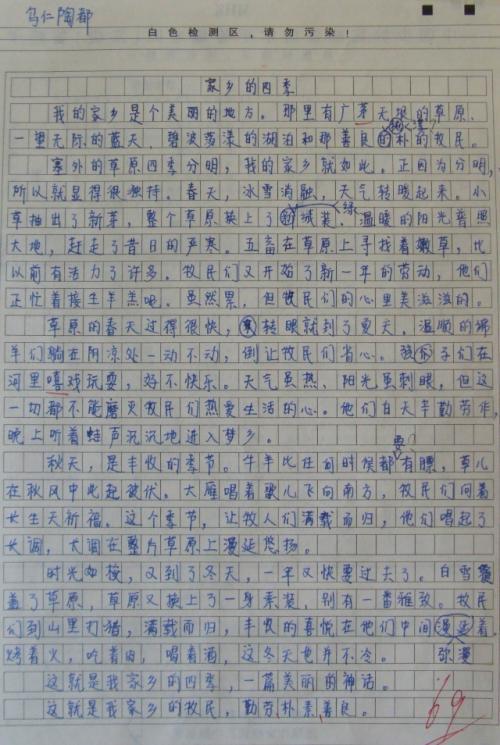 乌仁陶都
白色检测区，请勿污染！
家乡的四季
我的家乡是个美丽的地方。那里有广茅天垠的草原、
一望无际的蓝天、碧波荡漾的湖泊和那善良的朴的牧民。
塞外的草原四季分明，我的家乡就如此。正因为分明，
所以就显得很独特。春天，冰雪消融，天气转暖起来。小
草抽出了新芽，整个草原换上了绒装。温暖的阳光普照
绿
大地，赶走了昔日的严寒。五畜在草原上寻找着嫩草，比
以前有活力了许多。牧民们又开始了新一年的劳动，他们
正忙着接生羊羔呢。虽然累，但牧民们的心里美滋滋的。
草原的春天过得很快，转眼就到了夏天，温顺的绵
羊们躺在阴凉处一动不动，倒让牧民们省心。孩子们在
河里嘻戏玩耍，好不快乐。天气虽热、阳光虽刺眼，但这
一切都不能磨灭牧民们热爱生活的心。他们白天辛勤劳作，
晚上听着蛙声沉沉地进入梦乡。
要？
秋天，是丰收的季节。牛羊比任何时候都有膘，草儿
在秋风中此起被伏。大雁唱着歌儿飞向南方，牧民们向着
长生天祈福。这个季节，让牧人们满载而归，他们唱起了
长调，大调在整片草原上漫延悠扬。
时光如梭，又到了冬天，一年又快要过去了。白雪覆
盖了草原，草原又换上了一身素装，别有一番雅致。牧民
们到山里打猎，满载而归，丰收的喜悦在他们中间漫延着。
弥漫
烤着火，吃着肉，喝着酒，这冬天也并不冷。
这就是我家乡的四季，一篇美丽的神话。
这就是我家乡的牧民，勤劳、朴素、善良。
69